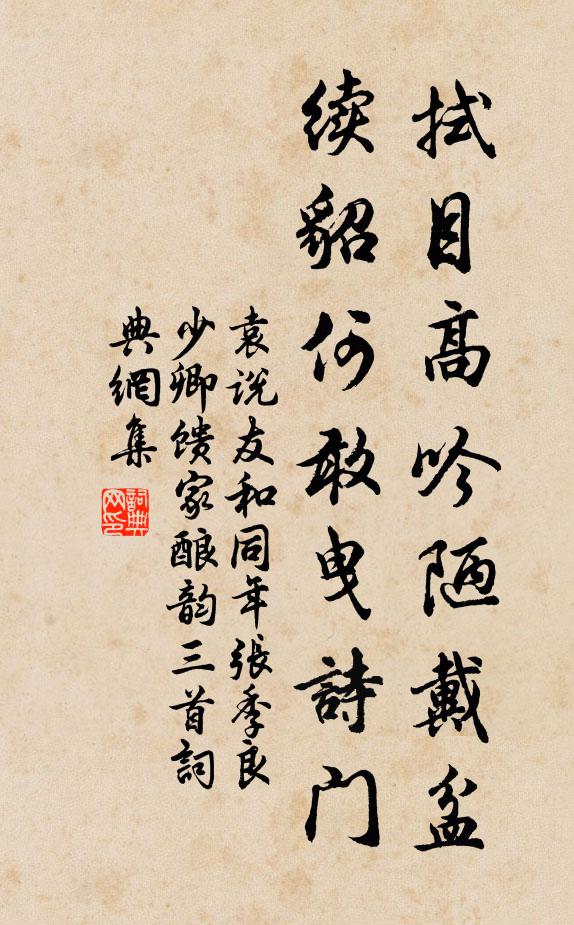 拭目高吟陋戴盆
续貂何敢曳詩门
袁说友和同年张季良
少卿馈家酿韵三首词
典網集
詞典網印